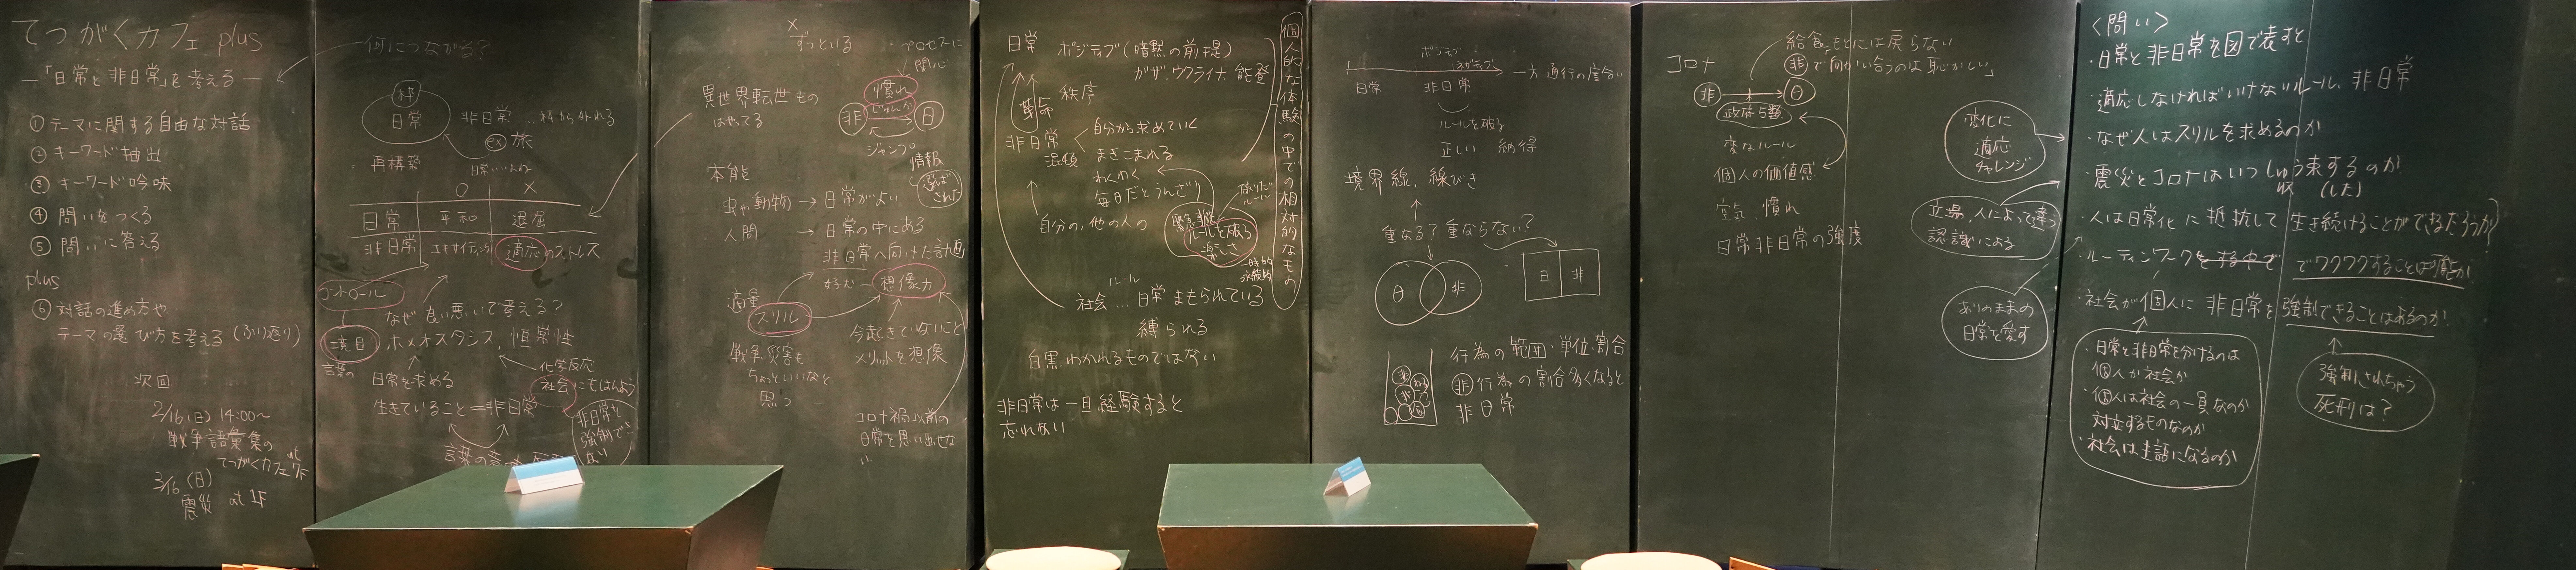 てつがくカフェ plus
―「日常と非日常」を考える―
① テーマに関する自由な対話
② キーワード抽出
③ キーワード吟味
④ 問いをつくる
⑤ 問いに答える
plus
⑥ 対話の進め方や
テーマの選び方を考える(ふり返り)
次回
2/16(日) 14:00〜
戦争語彙集の
てつがくカフェ at 7F
3/16(日)
震災 at 1F
何につながる?
枠
日常
非日常 … 枠から外れる
ex 旅
日常いいよね
再構築
○ ×
日常 平和 退屈
非日常 エキサイティング 適応のストレス
コントロール
なぜ 良い悪いで考える?
境目
言葉の
ホメオスタシス, 恒常性
化学反応
社会にもはんよう
日常を求める
生きていること = 非日常
非日常を
強制できない
言葉の意味
×
ずっといる
プロセスに
関心
慣れ
非 じゅんか 日
ジャンプ
異世界転世もの
はやってる
情報
選ばされた
本能
虫や動物 → 日常がよい
人間 → 日常の中にある
非日常へ向けた計画
好む ― 想像力
適量
スリル
今起きていないこと
メリットを想像
戦争, 災害も
ちょっといいなと
思う
コロナ禍以前の
日常を思い出せない
日常
ポジティブ(暗黙の前提)
ガザ, ウクライナ 能登
革命
秩序
非日常
混頓
自分から求めていく
まきこまれる
わくわく
毎日だとうんざり
自分の, 他の人の
ルールを破る
楽しさ
一時的
永続的
ルール
社会 … 日常 まもられている
縛られる
白黒, わかれるものではない
非日常は一旦経験すると
忘れない
個人的な体験の中での相対的なもの
ポジティブ
ネガティブ
一方通行の度合い
日常 非日常
ルールを破る
正しい 納得
境界線, 線びき
重なる? 重ならない?
日 非
日 非
行為の範囲・単位・割合
非 行為の割合多くなると
非日常
コロナ
給食「もとには戻らない
非で向かい合うのは恥かしい」
非 → 日
政府5類
変なルール
個人の価値感
空気, 慣れ
日常非日常の強度
変化に
適応
チャレンジ
立場, 人によって違う
認識による
ありのままの
日常を愛す
<問い>
・日常と非日常を図で表すと
・適応しなければいけないルール、非日常
・なぜ人はスリルを求めるのか
・震災とコロナはいつしゅう束するのか
収 (した)
・人は日常化に抵抗して生き続けることができるだろうか?
・ルーティンワークをする中ででワクワクすることは可能か
・社会が個人に非日常を強制できることはあるのか.
・日常と非日常を分けるのは
個人か社会か
・個人は社会の一員なのか
対立するものなのか
・社会は主語になるのか
強制されちゃう
死刑は?